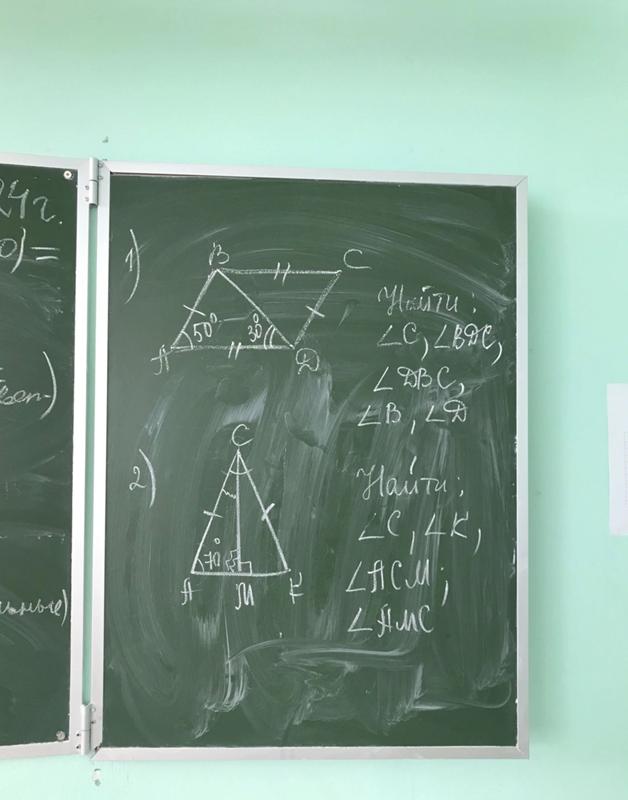 24г.
0)=
1)
B C
50° 30°
A D
Найти:
∠C, ∠BDC,
∠DBC,
∠B, ∠D
2)
C
70°
A M K
Найти:
∠C, ∠K,
∠ACM;
∠AMC